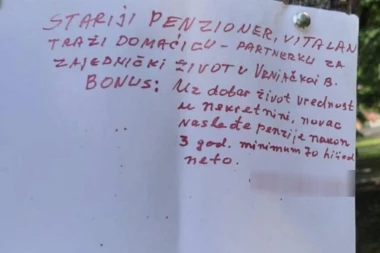 STARIJI PENZIONER, VITALAN
TRAŽI DOMAĆICU - PARTNERKU ZA
ZAJEDNIČKI ŽIVOT U VRNJAČKOJ B.
BONUS: Uz dobar život vrednost
u nekretnini, novac
nasleđe penzije nakon
3 god. minimum 70 hiljad
neto.